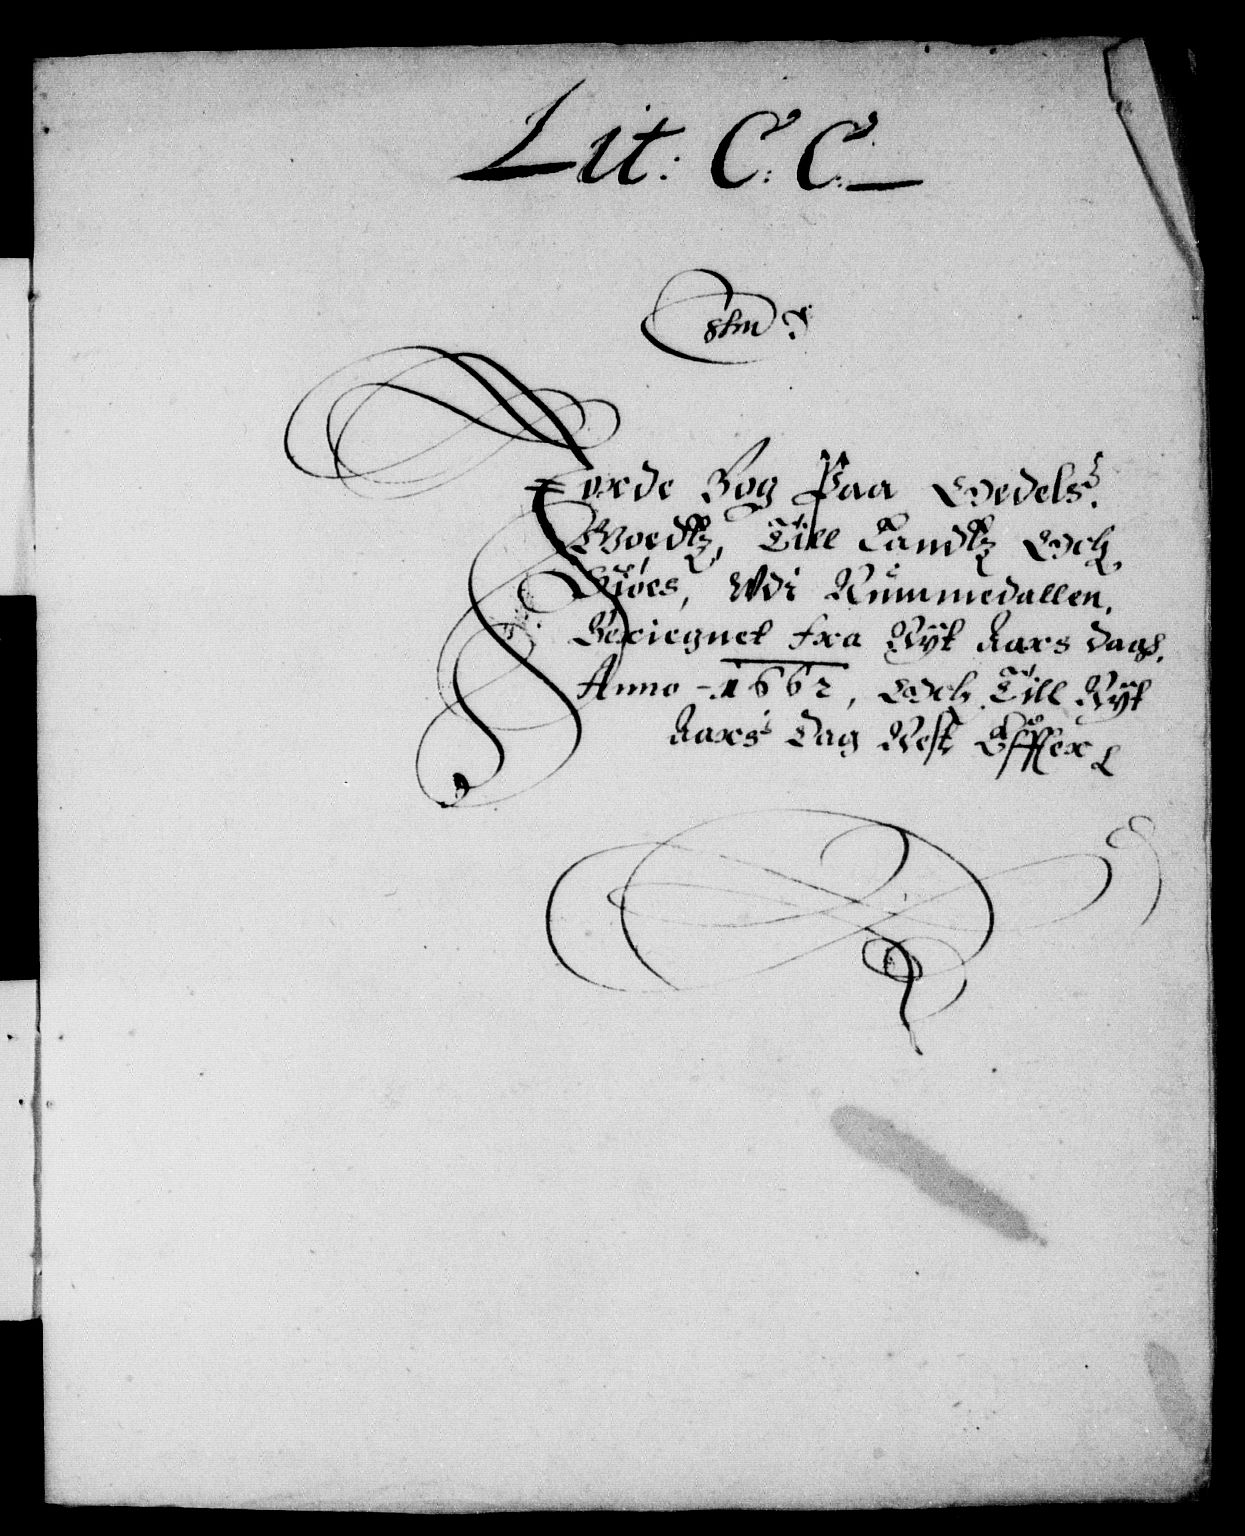 Lit: C: C:
Jorde Bog Paa Oedels
Goedtz, Till Landtz Och
Siøes, Udi Nummedallen,
Bereignet fra Nyt Aars dags,
Anno - 1662, Och Till Nyt
Aars Dag Nest Effter